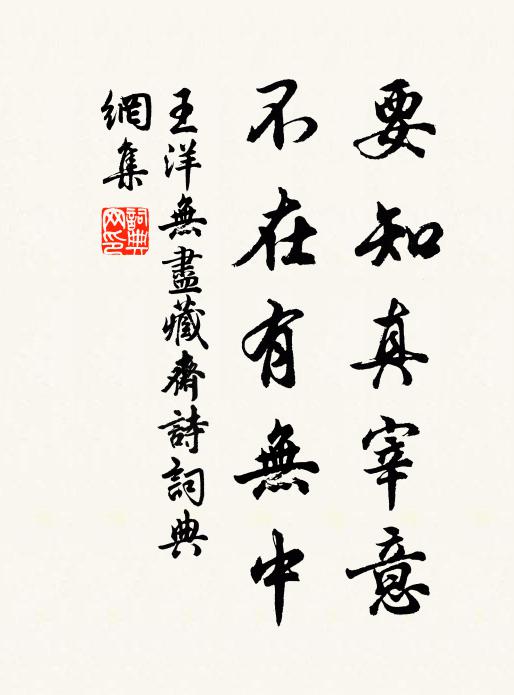 要知真宰意
不在有無中
王洋無盡藏齋詩詞典
網集
詞典网印